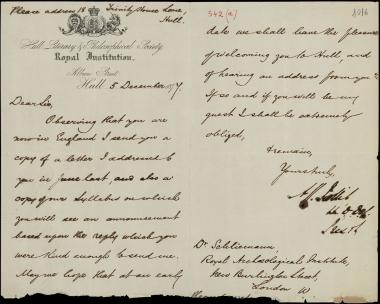 Please address 18 Trinity House Lane,
Hull.
Hull Literary & Philosophical Society.
Royal Institution,
Albion Street
Hull 5 December 1877.
Dear Sir,
Observing that you are
now in England I send you a
copy of a letter I addressed to
you in June last, and also a
copy of our Syllabus in which
you will see an announcement
based upon the reply which you
were kind enough to send me.
May we hope that at an early
342 (a)
date we shall have the pleasure
of welcoming you to Hull, and
of hearing an address from you?
If so and if you will be my
guest I shall be extremely
obliged,
I remain,
Yours truly,
Dr Schliemann,
Royal Archaeological Institute,
New Burlington Street,
London W